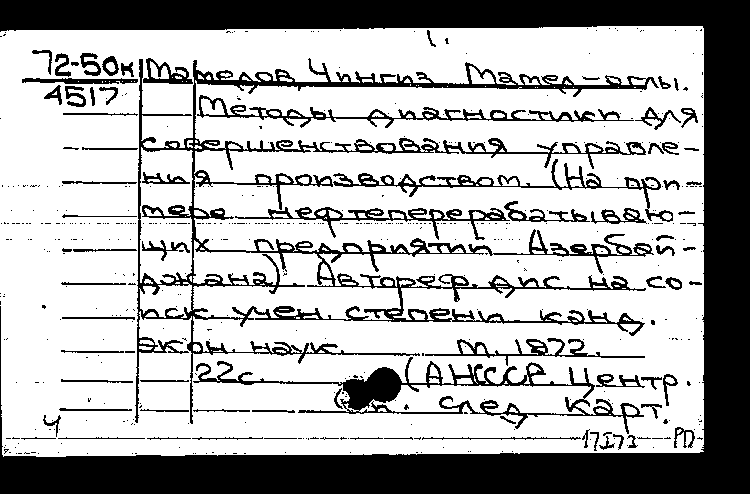 72-50к Мамедов, Чингиз Мамед-оглы.
4517
Методы диагностики для
совершенствования управле-
ния производством. (На при-
мере нефтеперерабатываю-
щих предприятий Азербай-
джана). Автореф. дис. на со-
иск. учен. степени канд.
экон. наук. М., 1972.
22с. (АН СССР. Центр.
след. карт.
ч
17173 РД